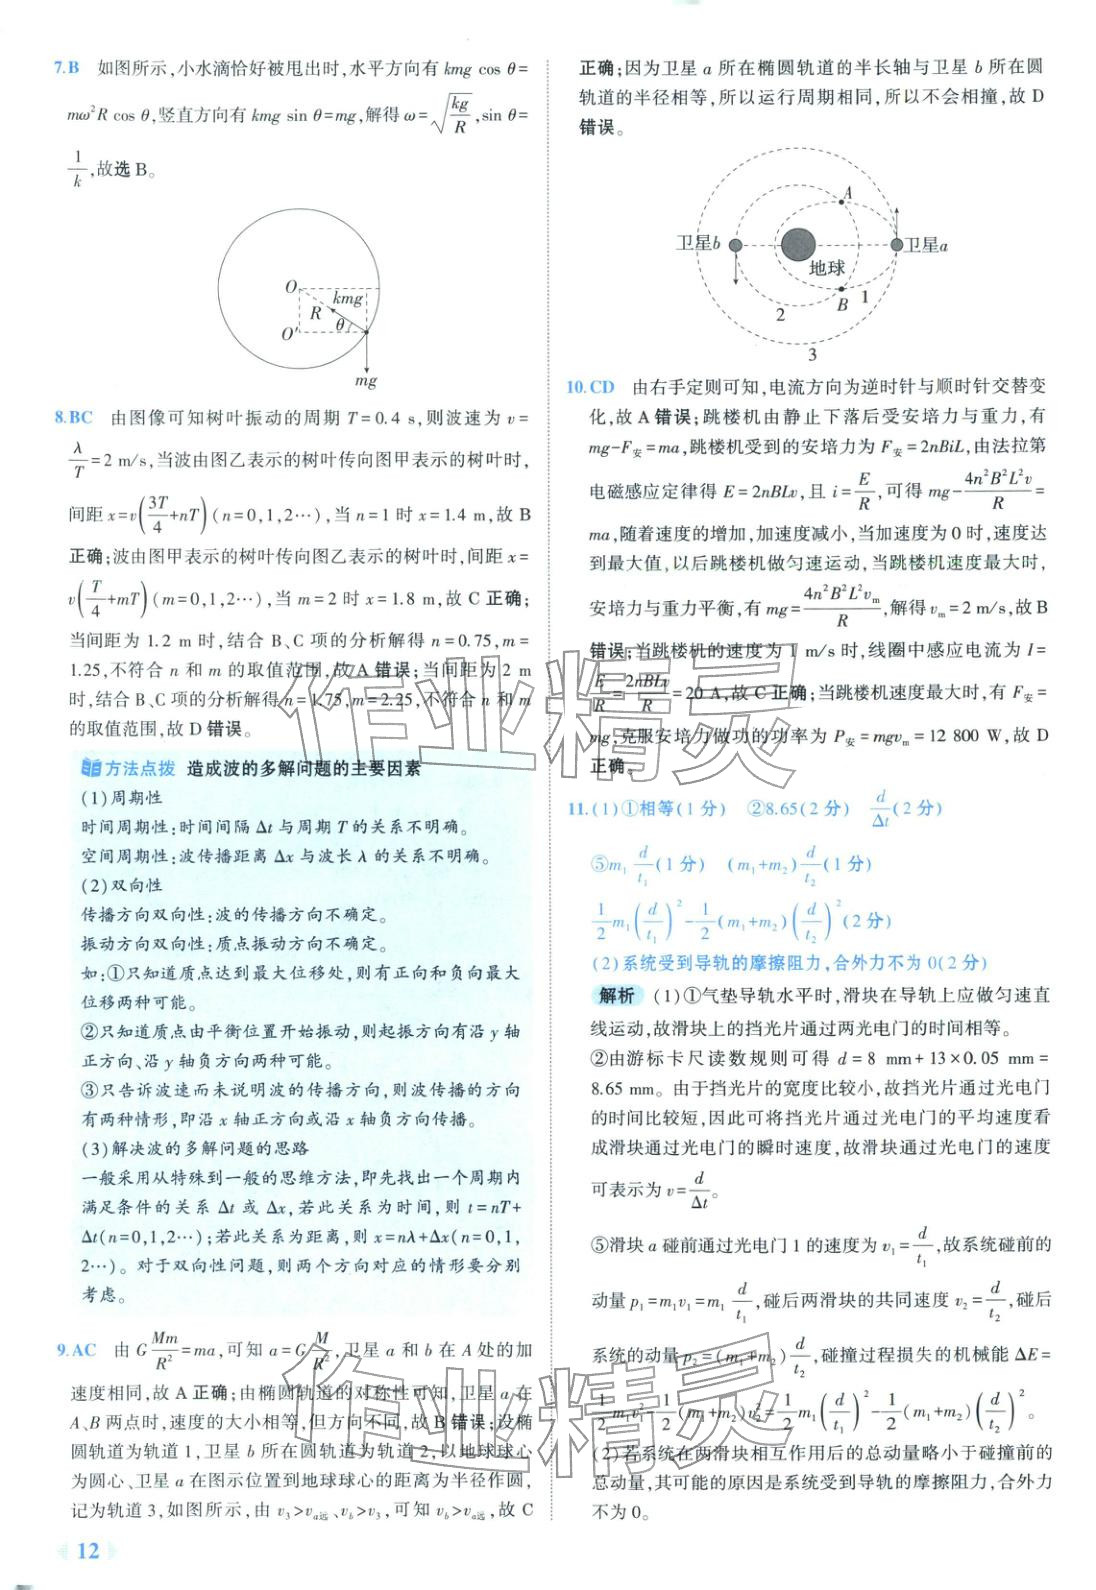 7.B 如图所示,小水滴恰好被甩出时,水平方向有 kmg cos θ=
mω²R cos θ,竖直方向有 kmg sin θ=mg,解得 ω=√(kg/R),sin θ=
1/k,故选 B。
O
kmg
R
θ
O'
mg
8.BC 由图像可知树叶振动的周期 T=0.4 s,则波速为 v=
λ/T=2 m/s,当波由图乙表示的树叶传向图甲表示的树叶时,
间距 x=v(3T/4+nT)(n=0,1,2…),当 n=1 时 x=1.4 m,故 B
正确;波由图甲表示的树叶传向图乙表示的树叶时,间距 x=
v(T/4+mT)(m=0,1,2…),当 m=2 时 x=1.8 m,故 C 正确;
当间距为 1.2 m 时,结合 B、C 项的分析解得 n=0.75,m=
1.25,不符合 n 和 m 的取值范围,故 A 错误;当间距为 2 m
时,结合 B、C 项的分析解得 n=1.75,m=2.25,不符合 n 和 m
的取值范围,故 D 错误。
方法点拨 造成波的多解问题的主要因素
(1)周期性
时间周期性:时间间隔 Δt 与周期 T 的关系不明确。
空间周期性:波传播距离 Δx 与波长 λ 的关系不明确。
(2)双向性
传播方向双向性:波的传播方向不确定。
振动方向双向性:质点振动方向不确定。
如:①只知道质点达到最大位移处,则有正向和负向最大
位移两种可能。
②只知道质点由平衡位置开始振动,则起振方向有沿 y 轴
正方向、沿 y 轴负方向两种可能。
③只告诉波速而未说明波的传播方向,则波传播的方向
有两种情形,即沿 x 轴正方向或沿 x 轴负方向传播。
(3)解决波的多解问题的思路
一般采用从特殊到一般的思维方法,即先找出一个周期内
满足条件的关系 Δt 或 Δx,若此关系为时间,则 t=nT+
Δt(n=0,1,2…);若此关系为距离,则 x=nλ+Δx(n=0,1,
2…)。对于双向性问题,则两个方向对应的情形要分别
考虑。
9.AC 由 G Mm/R²=ma,可知 a=G M/R²,卫星 a 和 b 在 A 处的加
速度相同,故 A 正确;由椭圆轨道的对称性可知,卫星 a 在
A、B 两点时,速度的大小相等,但方向不同,故 B 错误;设椭
圆轨道为轨道 1,卫星 b 所在圆轨道为轨道 2,以地球球心
为圆心、卫星 a 在图示位置到地球球心的距离为半径作圆,
记为轨道 3,如图所示,由 v₃>v_a远、v_b>v₃,可知 v_b>v_a远,故 C
12
正确;因为卫星 a 所在椭圆轨道的半长轴与卫星 b 所在圆
轨道的半径相等,所以运行周期相同,所以不会相撞,故 D
错误。
A
卫星b
卫星a
地球
B
1
2
3
10.CD 由右手定则可知,电流方向为逆时针与顺时针交替变
化,故 A 错误;跳楼机由静止下落后受安培力与重力,有
mg-F安=ma,跳楼机受到的安培力为 F安=2nBiL,由法拉第
电磁感应定律得 E=2nBLv,且 i=E/R,可得 mg-4n²B²L²v/R=
ma,随着速度的增加,加速度减小,当加速度为 0 时,速度达
到最大值,以后跳楼机做匀速运动,当跳楼机速度最大时,
安培力与重力平衡,有 mg=4n²B²L²vₘ/R,解得 vₘ=2 m/s,故 B
错误;当跳楼机的速度为 1 m/s 时,线圈中感应电流为 I=
E/R=2nBLv/R=20 A,故 C 正确;当跳楼机速度最大时,有 F安=
mg,克服安培力做功的功率为 P安=mgvₘ=12 800 W,故 D
正确。
11.(1)①相等(1 分) ②8.65(2 分) d/Δt(2 分)
⑤m₁ d/t₁(1 分) (m₁+m₂)d/t₂(1 分)
1/2 m₁(d/t₁)²-1/2(m₁+m₂)(d/t₂)²(2 分)
(2)系统受到导轨的摩擦阻力,合外力不为 0(2 分)
解析 (1)①气垫导轨水平时,滑块在导轨上应做匀速直
线运动,故滑块上的挡光片通过两光电门的时间相等。
②由游标卡尺读数规则可得 d=8 mm+13×0.05 mm=
8.65 mm。由于挡光片的宽度比较小,故挡光片通过光电门
的时间比较短,因此可将挡光片通过光电门的平均速度看
成滑块通过光电门的瞬时速度,故滑块通过光电门的速度
可表示为 v=d/Δt。
⑤滑块 a 碰前通过光电门 1 的速度为 v₁=d/t₁,故系统碰前的
动量 p₁=m₁v₁=m₁ d/t₁,碰后两滑块的共同速度 v₂=d/t₂,碰后
系统的动量 p₂=(m₁+m₂)d/t₂,碰撞过程损失的机械能 ΔE=
1/2 m₁v₁²-1/2(m₁+m₂)v₂²=1/2 m₁(d/t₁)²-1/2(m₁+m₂)(d/t₂)²。
(2)若系统在两滑块相互作用后的总动量略小于碰撞前的
总动量,其可能的原因是系统受到导轨的摩擦阻力,合外力
不为 0。
作业精灵
作业精灵